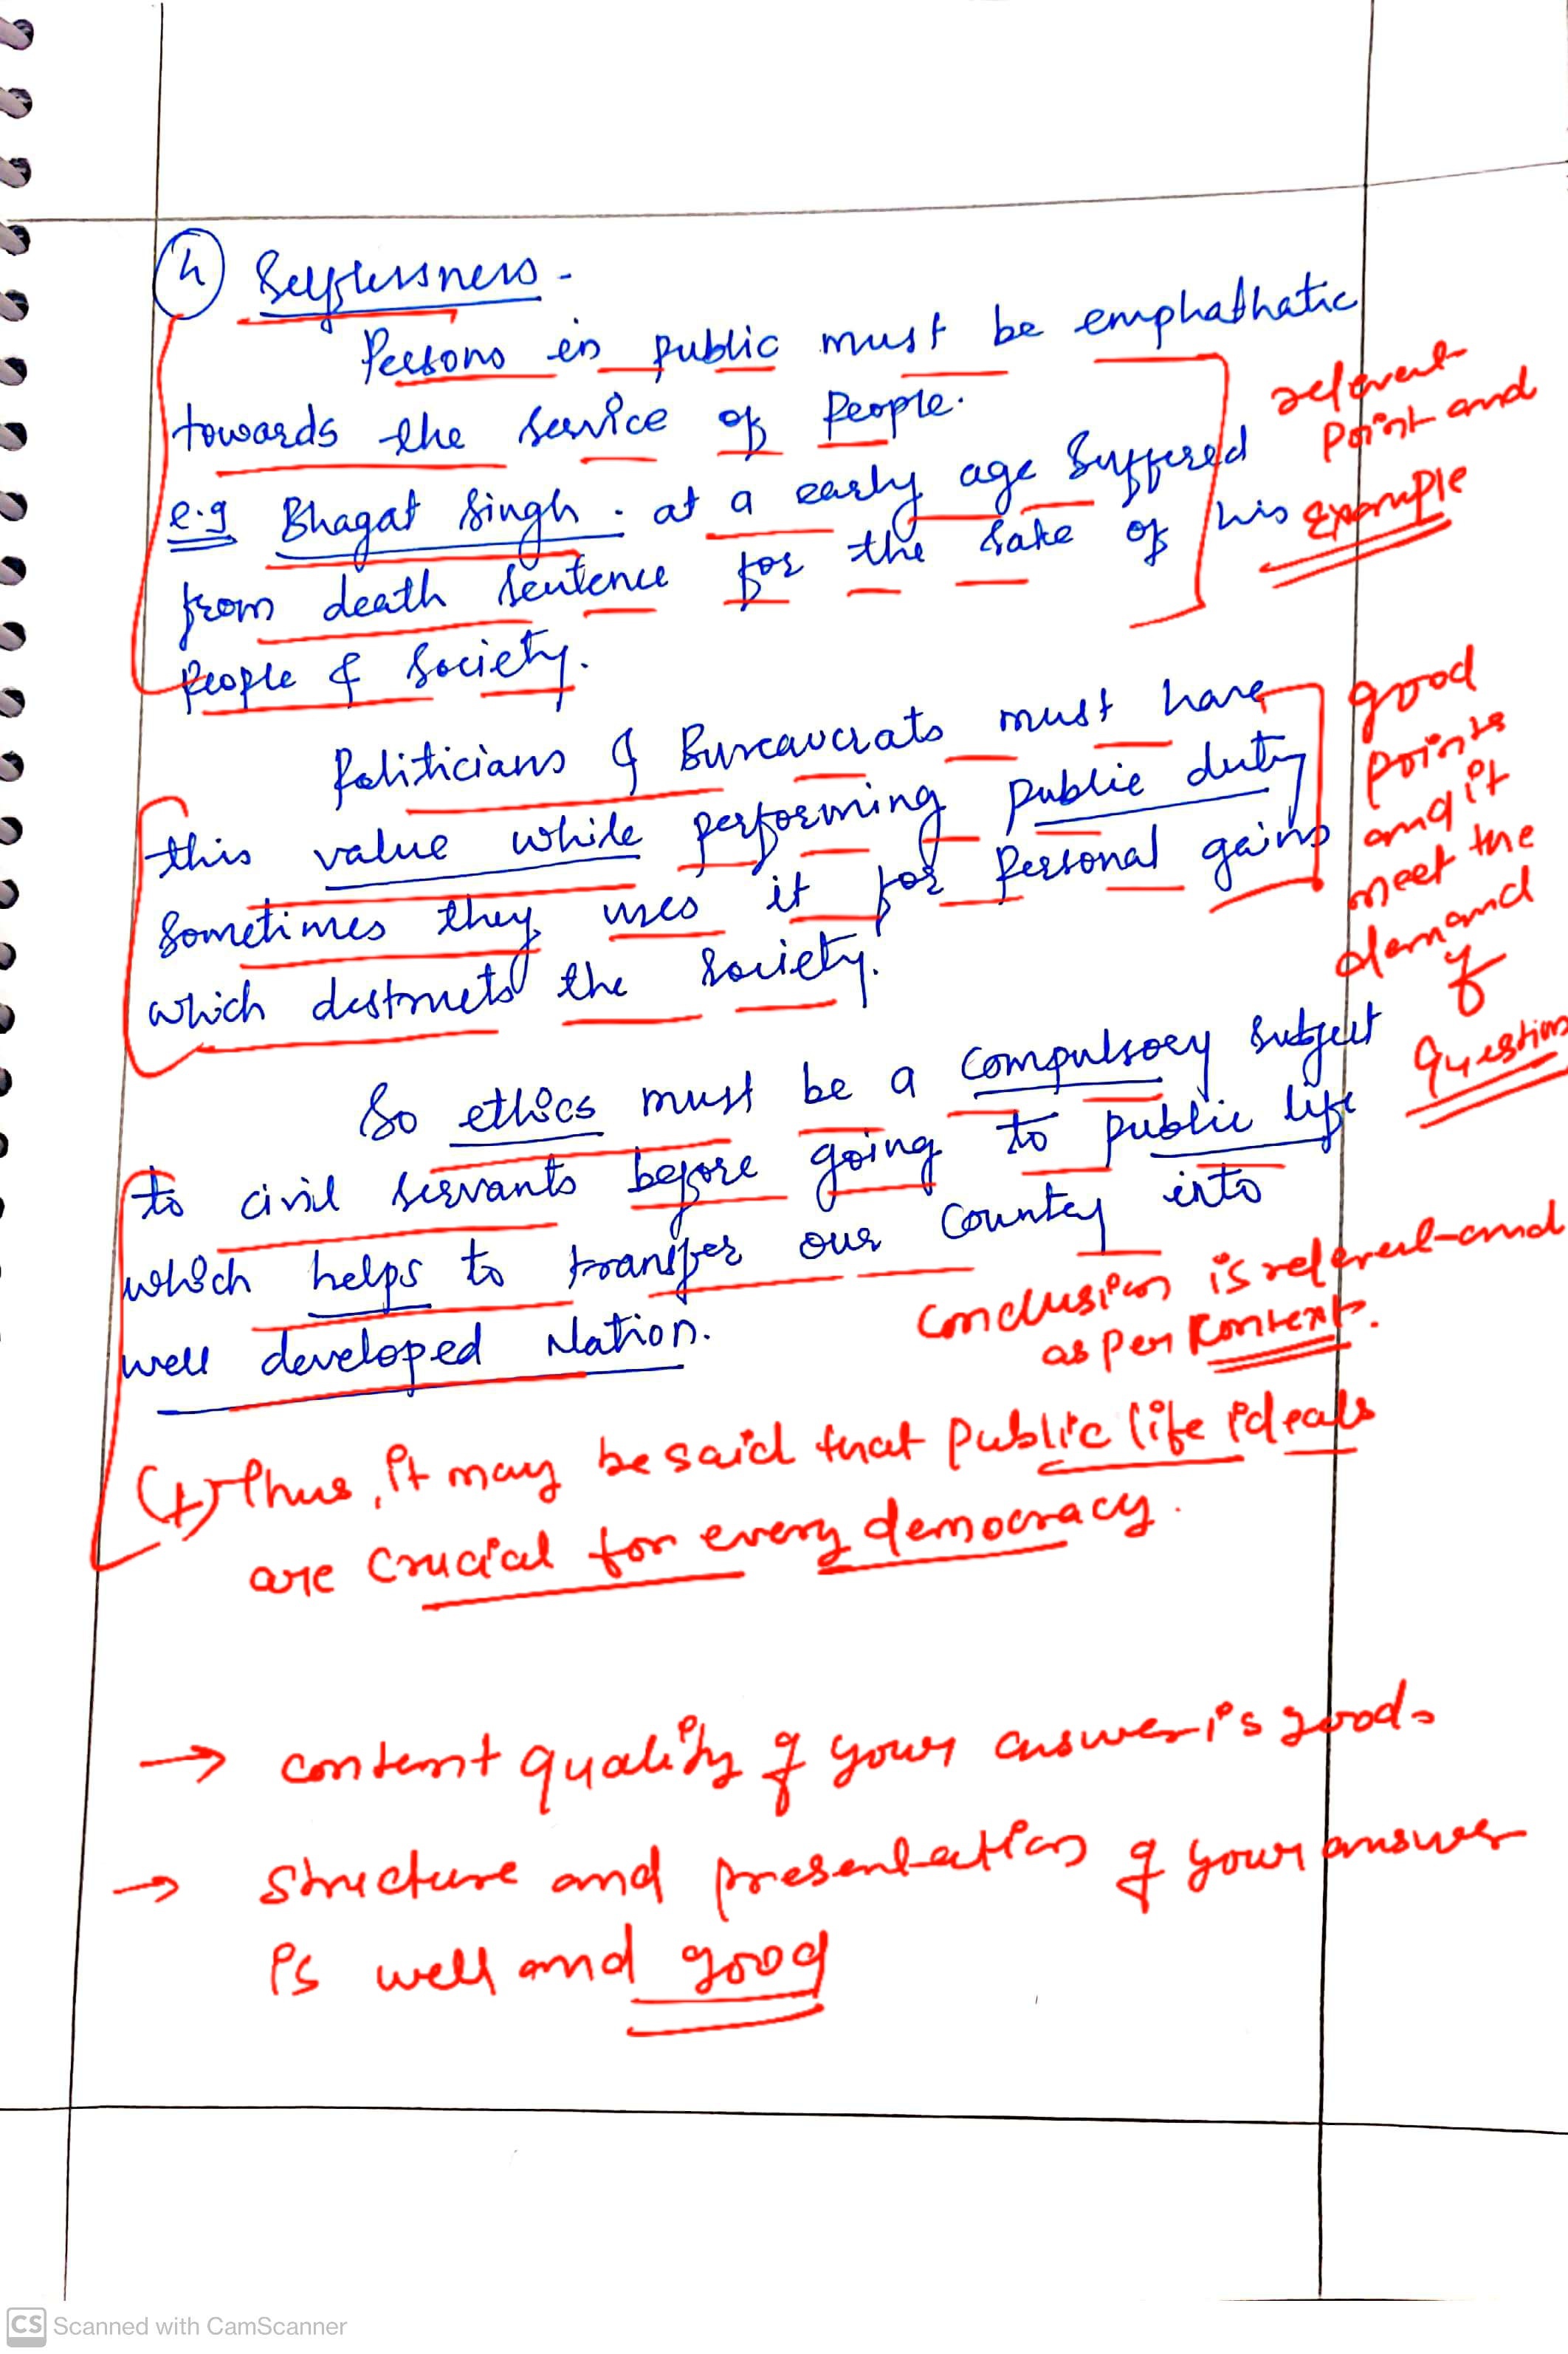 4 Selflessness -
Persons in public must be emphathatic
towards the service of People.
relevent
Point and
Example
e.g Bhagat Singh. at a early age Suffered
from death sentence for the sake of his
People & Society.
Politicians & Bureaucrats must have
this value while performing public duty
Sometimes they uses it for Personal gains
which destructs the Society.
good
points
and it
meet the
demand
of
Question
So ethics must be a compulsory Subject
to civil servants before going to public life
which helps to transfer our Country into
well developed Nation.
Conclusion is relevent and
as per Context.
(+) Thus, it may be said that Public life ideals
are Crucial for every democracy.
→ content quality of your answer is good.
→ structure and presentation of your answer
is well and good
CS Scanned with CamScanner